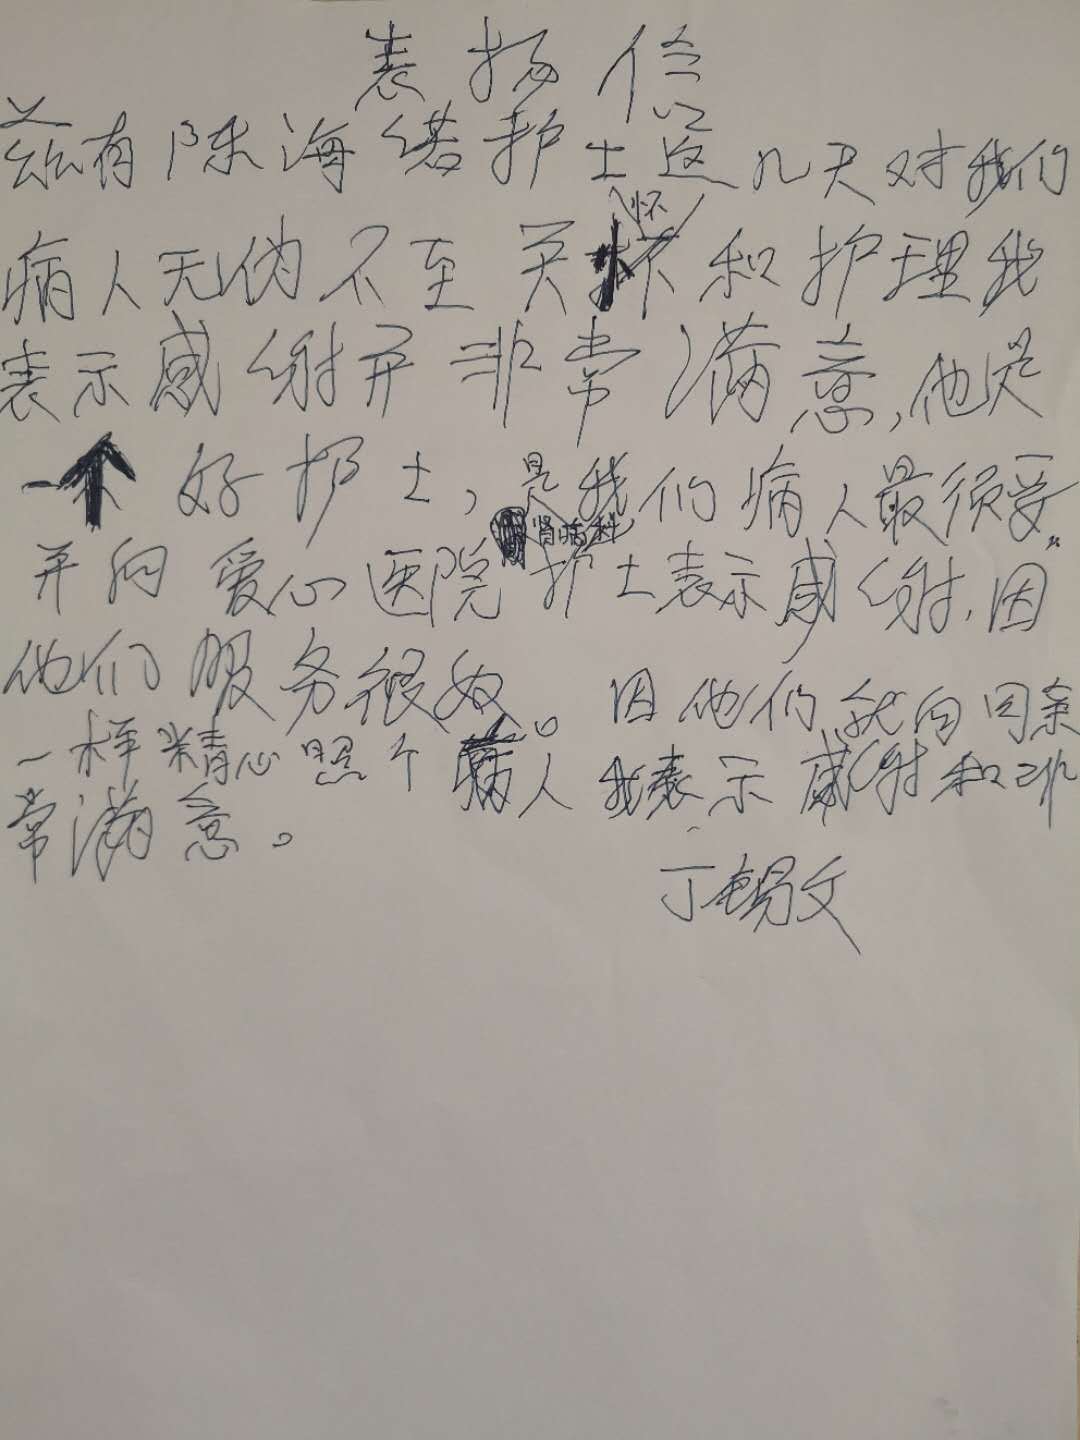 表扬信
兹有陈海偌护士这几天对我们
病人无伪不至关怀和护理我
表示感谢并非常满意,他是
一个好护士,是我们病人最
并向爱心医院肾病科护士表示感谢.因
他们服务很好。因他们就向同亲
一样精心照个病人我表示感谢和非
常满意。
丁锡文